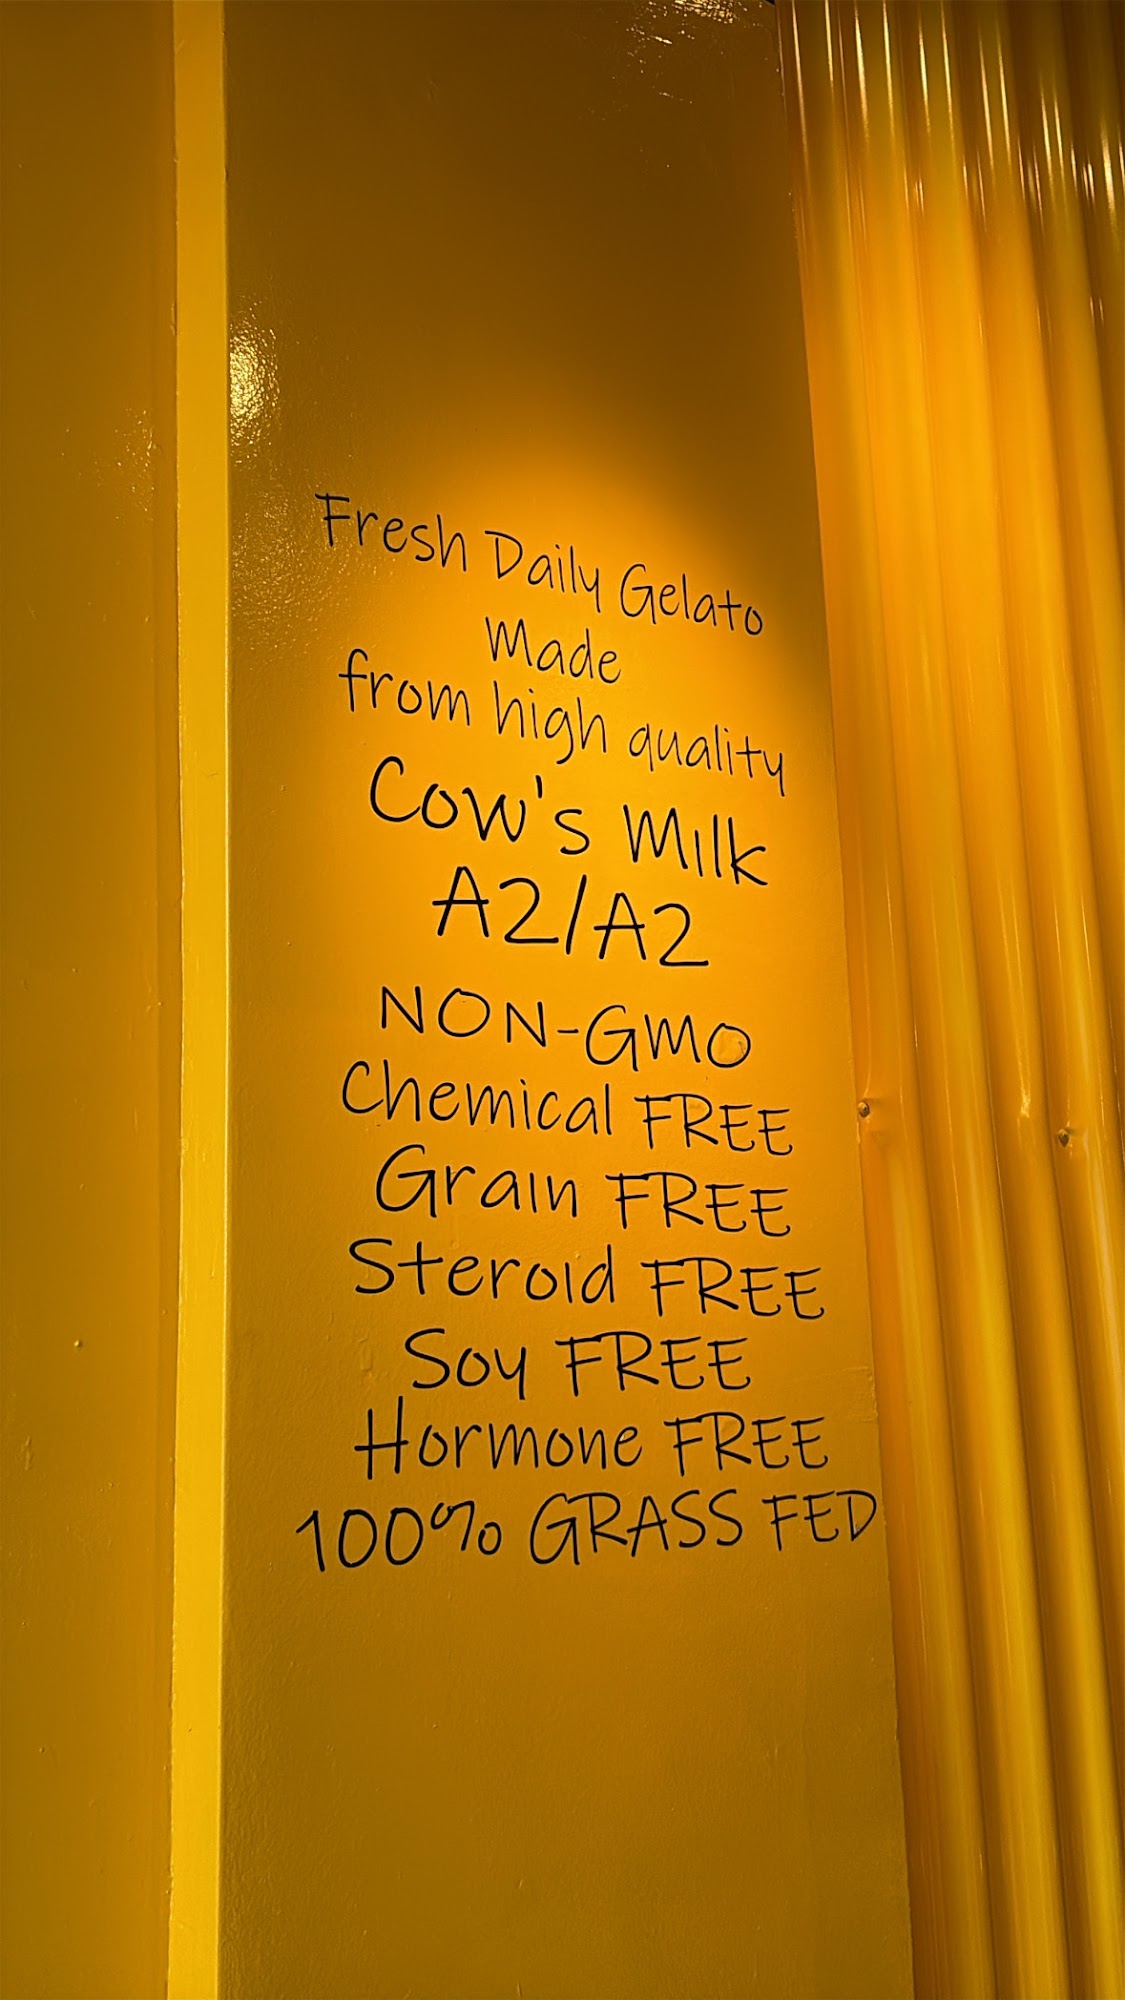 Fresh Daily Gelato
Made
from high quality
Cow's Milk
A2/A2
NON-GMO
Chemical FREE
Grain FREE
Steroid FREE
Soy FREE
Hormone FREE
100% GRASS FED